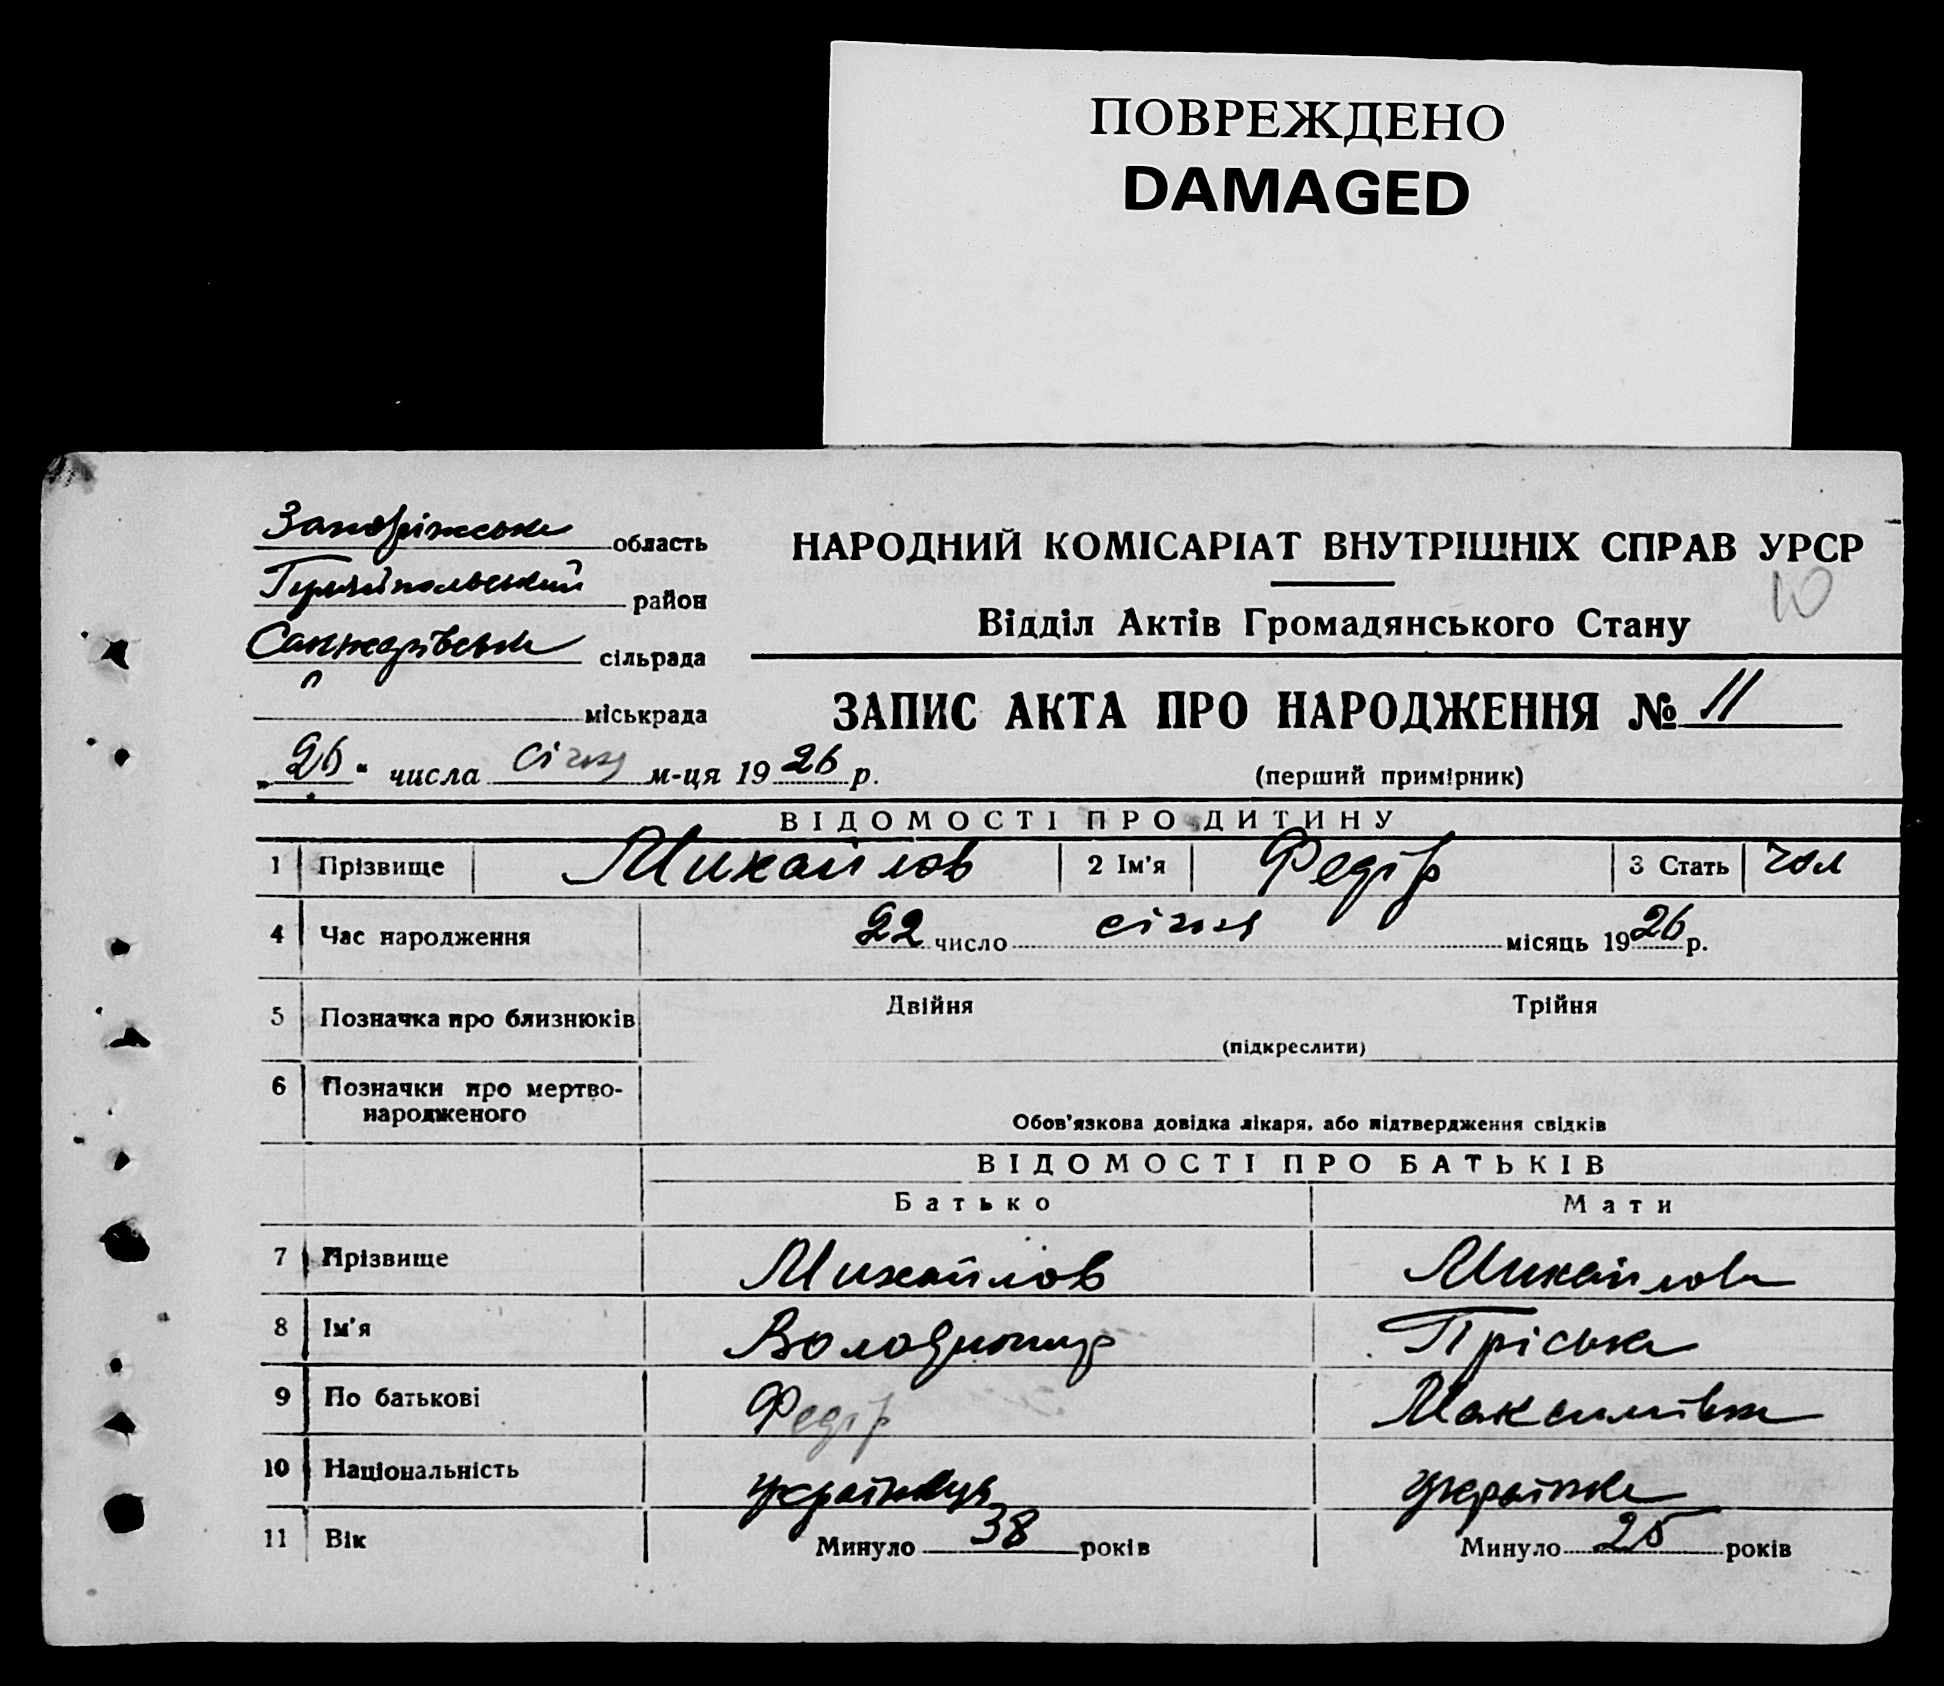 ПОВРЕЖДЕНО
DAMAGED
Запоріжська область
Гуляйпольський район
Санжарівська сільрада
міськрада
„26“ числа січня м-ця 1926 р.
НАРОДНИЙ КОМІСАРІАТ ВНУТРІШНІХ СПРАВ УРСР
10
Відділ Актів Громадянського Стану
ЗАПИС АКТА ПРО НАРОДЖЕННЯ № 11
(перший примірник)
ВІДОМОСТІ ПРО ДИТИНУ
1 Прізвище Михайлов 2 Ім'я Федір 3 Стать чол
4 Час народження 22 число січня місяць 1926 р.
5 Позначка про близнюків Двійня Трійня
(підкреслити)
6 Позначки про мертво-
народженого
Обов'язкова довідка лікаря, або підтвердження свідків
ВІДОМОСТІ ПРО БАТЬКІВ
Батько Мати
7 Прізвище Михайлов Михайлова
8 Ім'я Володимир Пріська
9 По батькові Федір Максимівна
10 Національність українець українка
11 Вік Минуло 38 років Минуло 25 років